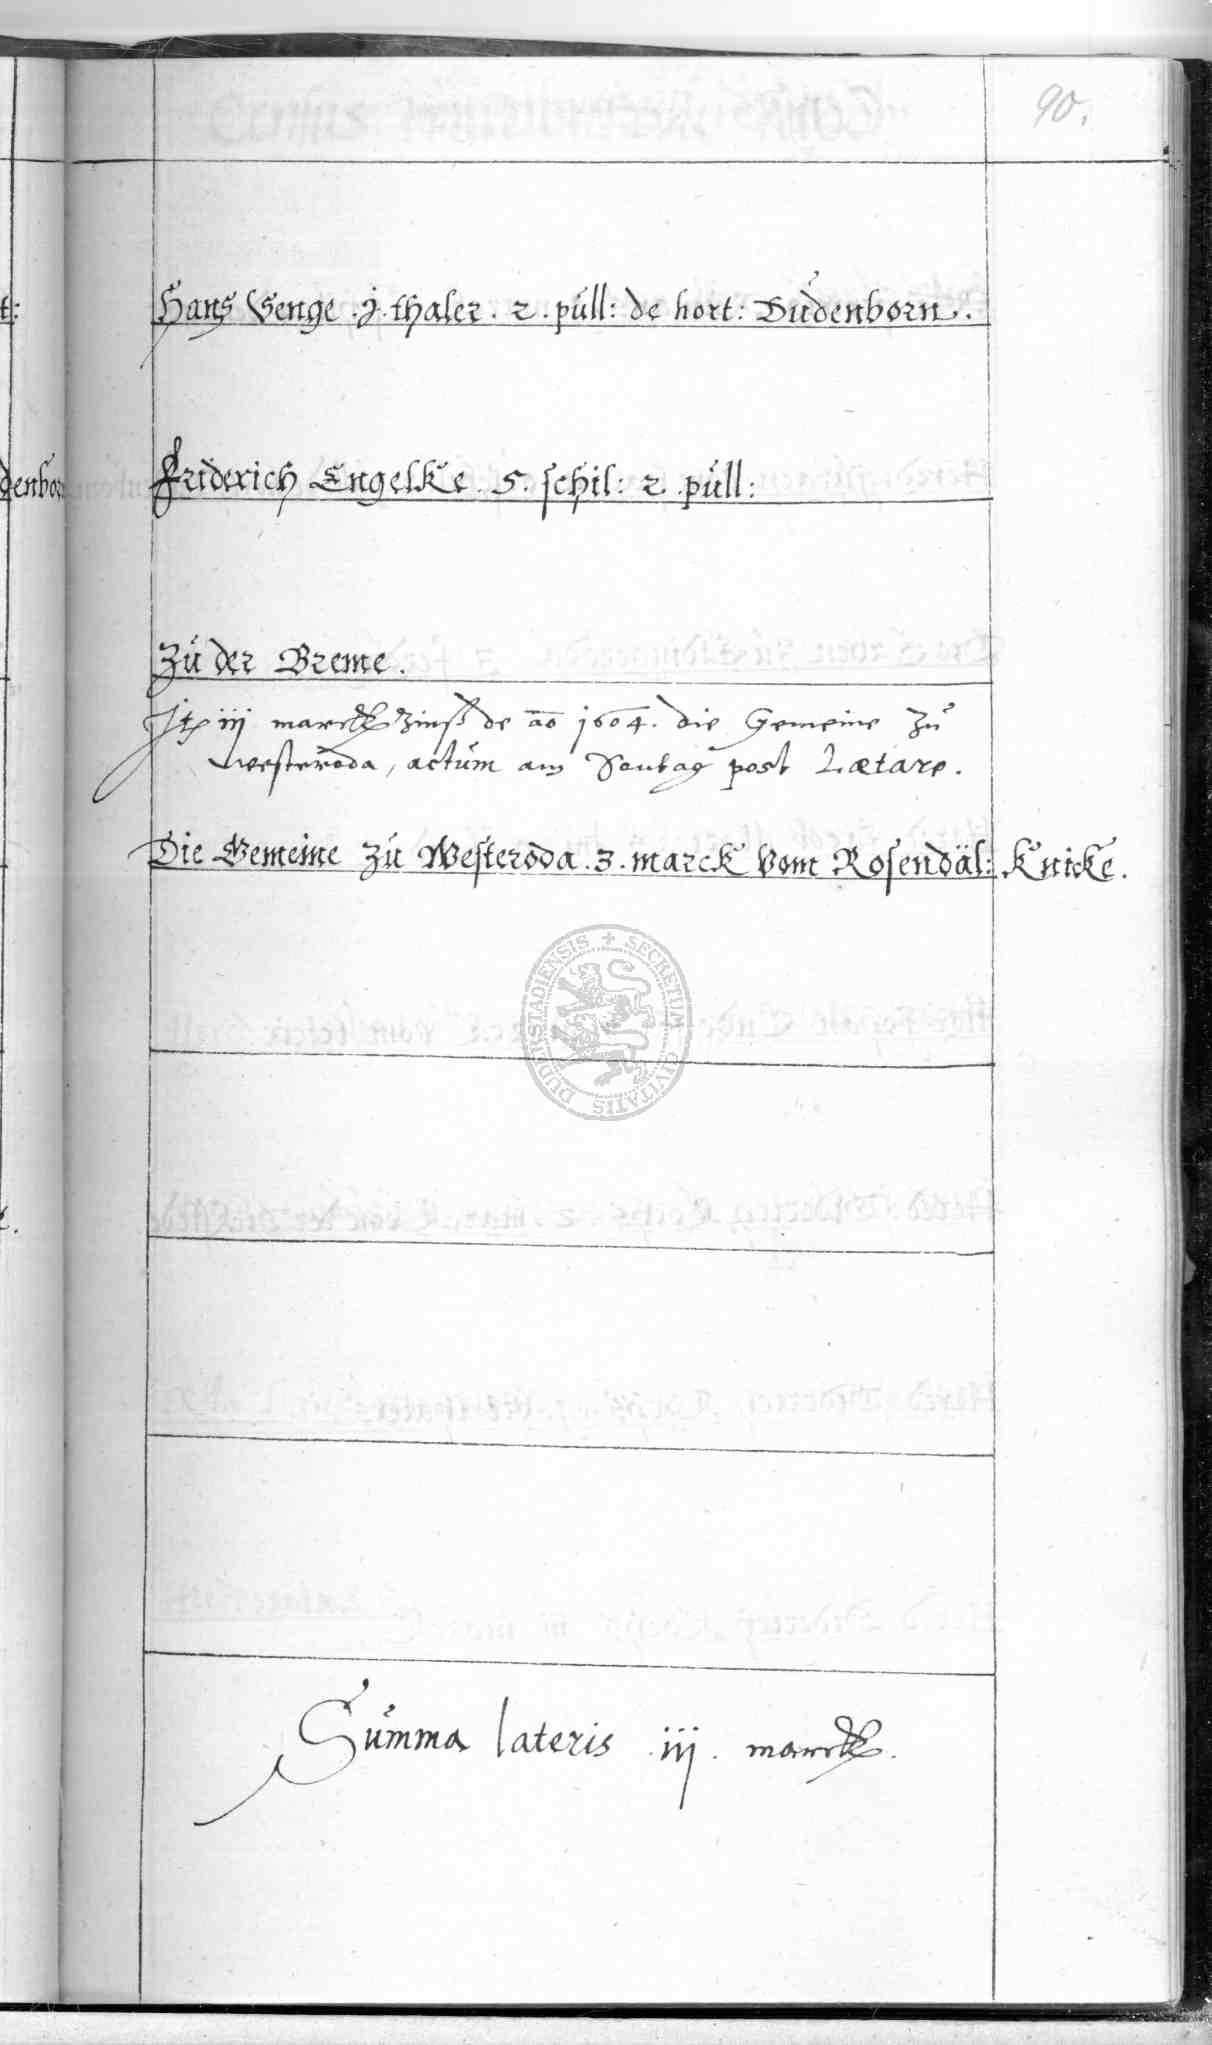 90.
Hans Senge . j . thaler . 2 . püll: de hort: Büdenborn .
Friderich Engelke . 5 . schil: 2 . püll:
Zü der Breme .
Jt iij marck Zinß de ao 1604 . die Gemeine Zü
westeroda, actüm am Sontag post Lætare .
Die Gemeine Zü Westeroda . 3 . marck vom Rosendäl: Knicke .
SECRETUM CIVITATIS DUDERSTADIENSIS
Sümma lateris . iij . marck .